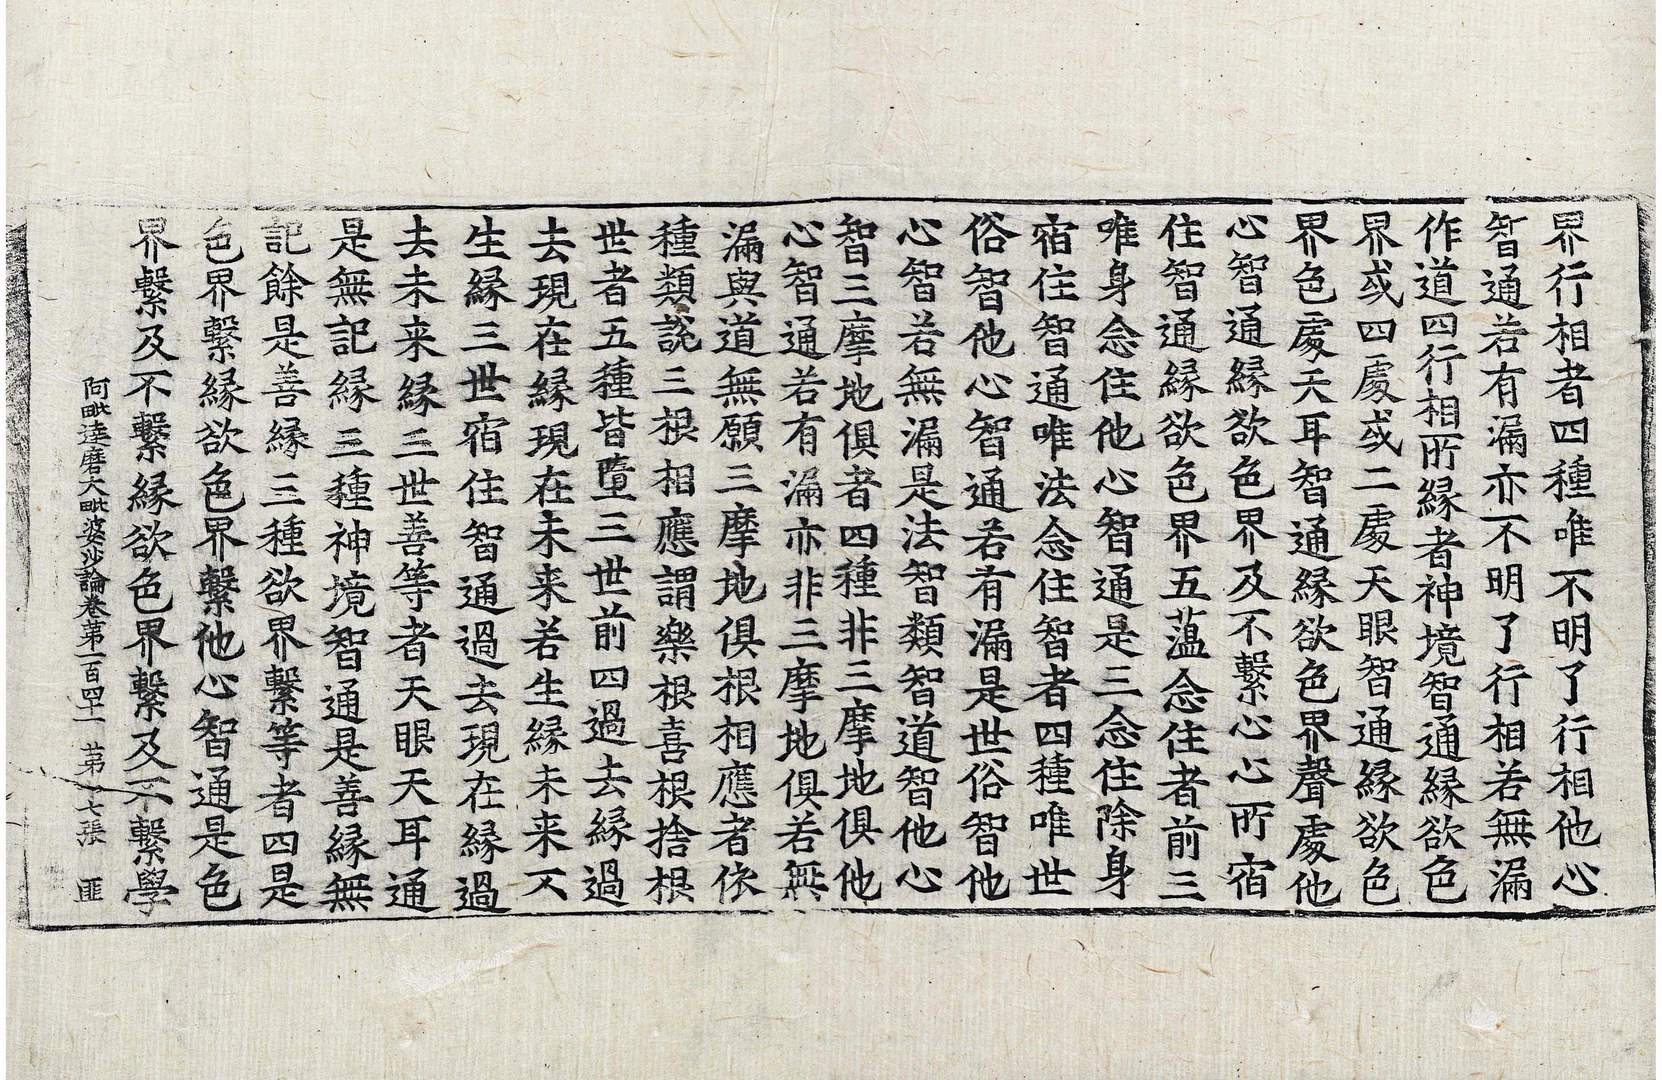 界行相者四種唯不明了行相他心
智通若有漏亦不明了行相若無漏
作道四行相所縁者神境智通縁欲色
界或四處或二處天眼智通縁欲色
界色處天耳智通縁欲色界聲處他
心智通縁欲色界及不繫心心所宿
住智通縁欲色界五蕰念住者前三
唯身念住他心智通是三念住除身
宿住智通唯法念住智者四種唯世
俗智他心智通若有漏是世俗智他
心智若無漏是法智類智道智他心
智三摩地俱者四種非三摩地俱他
心智通若有漏亦非三摩地俱若無
漏與道無願三摩地俱根相應者依
種類說三根相應謂樂根喜根捨根
世者五種皆墮三世前四過去縁過
去現在縁現在未来若生縁未来不
生縁三世宿住智通過去現在縁過
去未来縁三世善等者天眼天耳通
是無記縁三種神境智通是善縁無
記餘是善縁三種欲界繫等者四是
色界繫縁欲色界繫他心智通是色
界繫及不繫縁欲色界繫及不繫學
阿毗達磨大毗婆沙論卷第一百四十一 第七張 匪